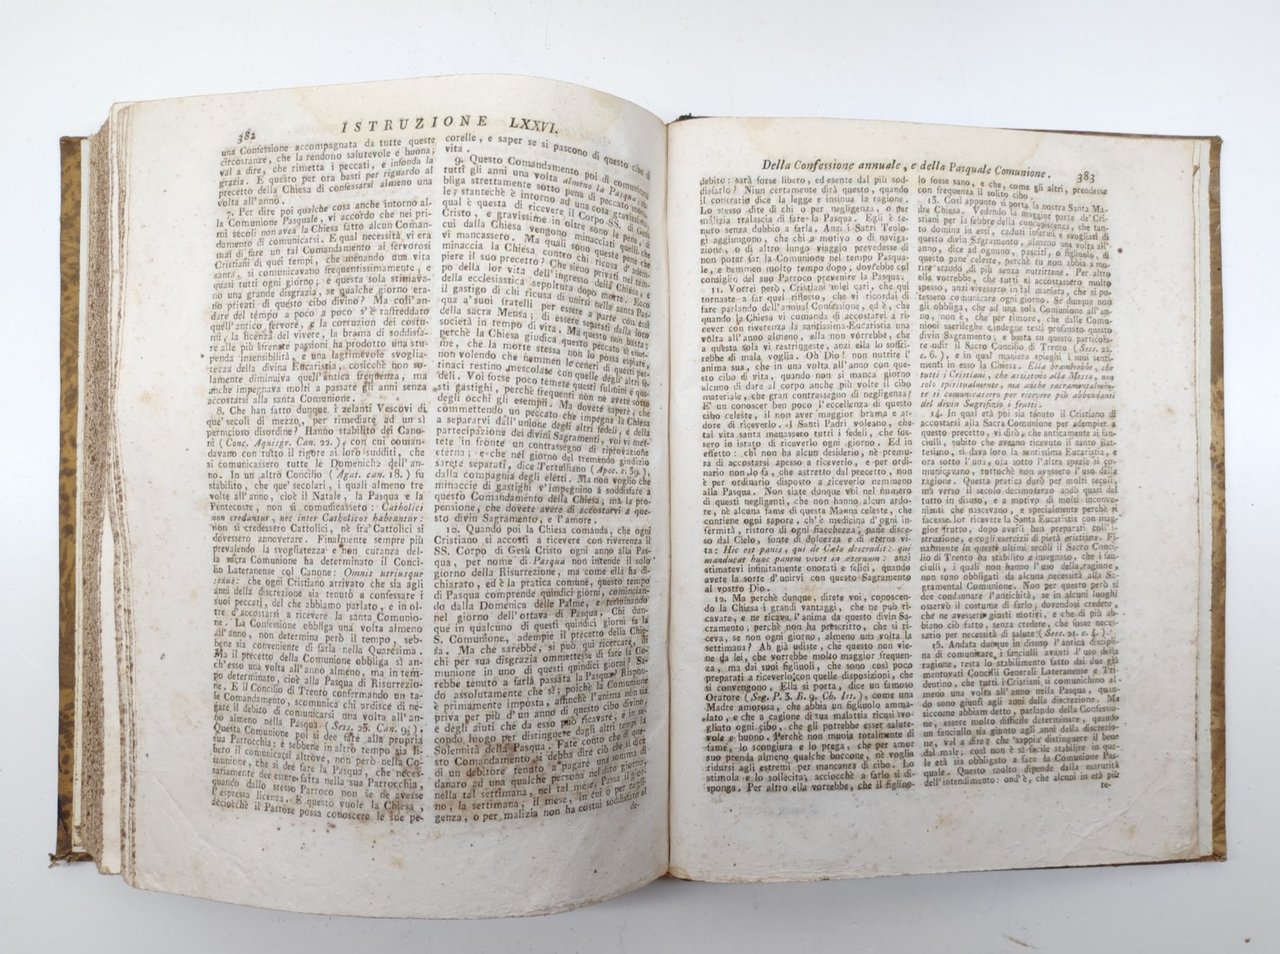 382
ISTRUZIONE LXXVI.
una Confessione accompagnata da tutte queste
circostanze, che la rendono salutevole e buona,
val a dire, che rimetta i peccati, e infonda la
grazia. E questo per ora basti per riguardo al
precetto della Chiesa di confessarsi almeno una
volta all'anno.
7. Per dire poi qualche cosa anche intorno al-
la Comunione Pasquale, vi accordo che nei pri-
mi secoli non avea la Chiesa fatto alcun Coman-
damento di comunicarsi. E qual necessità vi era
mai di fare un tal Comandamento ai fervorosi
Cristiani di quei tempi, che menando una vita
santa, si comunicavano frequentissimamente, e
quasi tutti ogni giorno; e questa sola stimava-
no una grande disgrazia, se qualche giorno era-
no privati di questo cibo divino? Ma coll'an-
dare del tempo a poco a poco s'è raffreddato
quell'antico fervore, e la corruzion dei costu-
mi, la licenza del vivere, la brama di soddisfa-
re alle più sfrenate passioni ha prodotto una stu-
penda insensibilità, e una lagrimevole svoglia-
tezza della divina Eucaristia, cosicchè non so-
lamente diminuiva quell'antica frequenza, ma
anche impegnava molti a passare gli anni senza
accostarsi alla santa Comunione.
8. Che han fatto dunque i zelanti Vescovi di
que' secoli di mezzo, per rimediare ad un sì
pernicioso disordine? Hanno stabilito dei Cano-
ni (Conc. Aquisgr. Can. 22.), con cui coman-
davano con tutto il rigore ai loro sudditi, che
si comunicassero tutte le Domeniche dell'an-
no. In un altro Concilio (Agat. can. 18.) fu
stabilito, che que' secolari, i quali almeno tre
volte all'anno, cioè il Natale, la Pasqua e la
Pentecoste, non si comunicassero: Catholici
non credantur, nec inter Catholicos habeantur:
non si credessero Cattolici, nè fra' Cattolici si
dovessero annoverare. Finalmente sempre più
prevalendo la svogliatezza e non curanza del-
la sacra Comunione ha determinato il Conci-
lio Lateranense col Canone: Omnis utriusque
sexus: che ogni Cristiano arrivato che sia agli
anni della discrezione sia tenuto a confessare i
suoi peccati, del che abbiamo parlato, e in ol-
tre d'accostarsi a ricevere la santa Comunio-
ne. La Confessione obbliga una volta almeno
all'anno, non determina però il tempo, seb-
bene sia conveniente di farla nella Quaresima.
Ma il precetto della Comunione obbliga sì an-
ch'esso una volta all'anno almeno, ma in tem-
po determinato, cioè alla Pasqua di Risurrezio-
ne. E il Concilio di Trento confermando un ta-
le Comandamento, scomunica chi ardisce di ne-
gare il debito di comunicarsi una volta all'an-
no almeno nella Pasqua (Sess. 25. Can. 9.);
Questa Comunione poi si dee fare alla propria
sua Parrocchia; e sebbene in altro tempo sia li-
bero il comunicarsi altrove, non però nella Co-
munione, che si dee fare la Pasqua, che neces-
sariamente dee essere fatta nella sua Parrocchia,
quando dallo stesso Parroco non se ne avesse
l'espressa licenza. E questo vuole la Chiesa,
acciocchè il Pastore possa conoscere le sue pe-
corelle, e saper se si pascono di questo cibo di
vita.
9. Questo Comandamento poi di comunicarsi
tutti gli anni una volta almeno la Pasqua, ob-
bliga strettamente sotto pena di peccato morta-
le; stantechè è intorno ad una cosa gravissima,
qual è questa di ricevere il Corpo SS. di Gesù
Cristo, e gravissime in oltre sono le pene, di
cui dalla Chiesa vengono minacciati quelli, che
vi mancassero. Ma quali sono queste pene che
minaccia la Chiesa contro chi ricusa di adem-
piere il suo precetto? Che sieno privati nel tem-
po della lor vita dell'ingresso della Chiesa, e
della ecclesiastica sepoltura dopo morte. Ecco
il gastigo di chi ricusa di unirsi nella santa Pas-
qua a' suoi fratelli per essere a parte con essi
della sacra Mensa; di essere separati dalla loro
società in tempo di vita. Ma questo non basta;
perchè la Chiesa giudica questo peccato sì enor-
me, che la morte stessa non lo possa espiare,
non volendo che nemmen le ceneri di questi per-
tinaci restino mescolate con quelle degli altri fe-
deli. Voi forse poco temete questi fulmini e que-
sti gastighi, perchè frequenti non ne avete sotto
degli occhi gli esempli. Ma dovete sapere, che
commettendo un peccato che impegna la Chiesa
a separarvi dall'unione degli altri fedeli, e della
partecipazione dei divini Sagramenti, voi vi met-
tete in fronte un contrassegno di riprovazione
eterna; e che nel giorno del tremendo giudizio
sarete separati, dice Tertulliano (Apoc. c. 39.),
dalla compagnia degli eletti. Ma non voglio che
minaccie di gastighi v'impegnino a soddisfare a
questo Comandamento della Chiesa; ma la pro-
pensione, che dovete avere di accostarvi a que-
sto divin Sagramento, e l'amore.
10. Quando poi la Chiesa comanda, che ogni
Cristiano si accosti a ricevere con riverenza il
SS. Corpo di Gesù Cristo ogni anno alla Pas-
qua, per nome di Pasqua non intende il solo
giorno della Risurrezione, ma come ella ha di-
chiarato, ed è la pratica comune, questo tempo
di Pasqua comprende quindici giorni, cominciàn-
do dalla Domenica delle Palme, e terminando
nel giorno dell'ottava di Pasqua. Chi dun-
que in qualcuno di questi quindici giorni fa la
S. Comunione, adempie il precetto della Chie-
sa. Ma che sarebbe, si può qui ricercare, di
chi per sua disgrazia ommettesse di fare la Co-
munione in uno di questi quindici giorni? Sa-
rebbe tenuto a farla passata la Pasqua? Rispon-
do assolutamente che sì; poichè la Comunione
è primamente imposta, affinchè il Cristiano non
priva per più d'un anno di questo cibo divino,
e degli ajuti che da esso può ricavare, e in se-
condo luogo per distinguere dagli altri giorni la
Solennità della Pasqua. Fate conto che di questo
Comandamento si debba dire ciò che si dice
di un debitore tenuto a pagare una somma di
danaro ad una qualche persona nel tal giorno,
nella tal settimana, nel tal mese. Passa il gior-
no, la settimana, il mese, in cui o per negli-
genza, o per malizia non ha costui soddisfatto al
de-
Della Confessione annuale, e della Pasquale Comunione.
383
debito: sarà forse libero, ed esente dal più sod-
disfarlo? Niun certamente dirà questo, quando
il contrario dice la legge e insinua la ragione.
Lo stesso dite di chi o per negligenza, o per
malizia tralascia di fare la Pasqua. Egli è te-
nuto senza dubbio a farla. Anzi i Sacri Teolo-
gi aggiungono, che chi a motivo o di naviga-
zione, o di altro lungo viaggio prevedesse di
non poter far la Comunione nel tempo Pasqua-
le, e nemmen molto tempo dopo; dovrebbe col
consiglio del suo Parroco prevenire la Pasqua.
11. Vorrei però, Cristiani miei cari, che quì
tornaste a far quel riflesso, che vi ricordai di
fare parlando dell'annual Confessione, ed è, che
quando la Chiesa vi comanda di accostarvi a ri-
cever con riverenza la santissima Eucaristia una
volta all'anno almeno, ella non vorrebbe, che
a questa sola vi restrigneste, anzi ella lo soffri-
rebbe di mala voglia. Oh Dio! non nutrire l'
anima sua, che in una volta all'anno con que-
sto cibo di vita, quando non si manca giorno
alcuno di dare al corpo anche più volte il cibo
materiale, che gran contrassegno di negligenza?
E' un conoscer ben poco l'eccellenza di questo
cibo celeste, il non aver maggior brama e ar-
dore di riceverlo. I Santi Padri voleano, che
tal vita santa menassero tutti i fedeli, che fos-
sero in istato di riceverlo ogni giorno. Ed in
effetto: chi non ha alcun desiderio, nè premu-
ra di accostarsi spesso a riceverlo, e per ordi-
nario non lo fa, che astretto dal precetto, non
è per ordinario disposto a riceverlo nemmeno
alla Pasqua. Non siate dunque voi nel numero
di questi negligenti, che non hanno alcun ardo-
re, nè alcuna fame di questa Manna celeste, che
contiene ogni sapore, ch'è medicina d'ogni in-
fermità, ristoro di ogni fiacchezza, pane disce-
so dal Cielo, fonte di dolcezza e di eterna vi-
ta: Hic est panis, qui de Cælo descendit: qui
manducat hunc panem vivet in æternum: anzi
stimatevi infinitamente onorati e felici, quando
avete la sorte d'unirvi con questo Sagramento
al vostro Dio.
12. Ma perchè dunque, direte voi, conoscen-
do la Chiesa i grandi vantaggi, che ne può ri-
cavare, e ne ricava l'anima da questo divin Sa-
cramento; perchè non ha prescritto, che si ri-
ceva, se non ogni giorno, almeno una volta la
settimana? Ah già udiste, che questo non vie-
ne da lei, che vorrebbe molto maggior frequen-
za, ma dai suoi figliuoli, che sono così poco
preparati a riceverlo con quelle disposizioni, che
si convengono. Ella si porta, dice un famoso
Oratore (Seg. P. 3. R. 9. Ch. Ist.), come una
Madre amorosa, che abbia un figliuolo amma-
lato, e che a cagione di sua malattia ricusi svo-
gliato ogni cibo, che gli potrebbe esser salute-
vole e buono. Perchè non muoia totalmente di
fame, lo scongiura e lo prega, che per amor
suo prenda almeno qualche boccone, nè voglia
ridursi agli estremi per mancanza di cibo. Lo
stimola e lo sollecita, acciocchè a farlo si di-
sponga. Per altro ella vorrebbe, che il figliuo-
lo fosse sano, e che, come gli altri, prendesse
con frequenza il solito cibo.
13. Così appunto si porta la nostra Santa Ma-
dre Chiesa. Vedendo la maggior parte de' Cri-
stiani per la febbre della concupiscenza, che tan-
to domina in essi, caduti infermi e svogliati di
questo divin Sagramento, almeno una volta all'
anno, dice ad ognuno, pasciti, o figliuolo, di
questo pane celeste, perchè tu non abbia a mo-
rire stando di più senza nutrirtene. Per altro
ella vorrebbe, che tutti si accostassero molto
spesso, anzi vivessero in tal maniera, che si po-
tessero comunicare ogni giorno. Se dunque non
gli obbliga, che ad una sola Comunione all'an-
no, non è, che per timore, che dalle Comu-
nioni sacrileghe e indegne resti profanato questo
divino Sagramento; e basta su questo particola-
re udir il Sacro Concilio di Trento (Sess. 22.
c. 6.), e in qual maniera spieghi i suoi senti-
menti su questo. Ella bramerebbe, che
tutti i Cristiani, che assistono alla Messa, non
solo spiritualmente, ma anche sacramentalmen-
te si comunicassero per ricevere più abbondanti
del divin Sagrifizio i frutti.
14. In qual età poi sia tenuto il Cristiano di
accostarsi alla Sacra Comunione per adempier a
questo precetto, vi dirò, che anticamente ai fan-
ciulli, subito che aveano ricevuto il santo Bat-
tesimo, si dava loro la santissima Eucaristia, e
ora sotto l'una, ora sotto l'altra spezie si co-
municavano, tuttochè non avessero l'uso della
ragione. Questa pratica durò per molti secoli,
ma verso il secolo decimoterzo andò quasi del
tutto in disuso, e a motivo di molti inconve-
nienti che nascevano, e specialmente perchè si
facesse lor ricevere la Santa Eucaristia con mag-
gior frutto, dopo averli ben preparati coll'i-
struzione, e cogli esercizi di pietà cristiana. Fi-
nalmente in questi ultimi secoli il Sacro Conci-
lio di Trento ha stabilito e insegnato, che i fan-
ciulli, i quali non hanno l'uso della ragione,
non sono obbligati da alcuna necessità alla Sa-
gramental Comunione. Non per questo però si
dee condannare l'antichità, se in alcuni luoghi
osservò il costume di farlo; dovendosi credere,
che ne avessero giusti motivi, e che di più ab-
biano ciò fatto, senza credere, che fosse neces-
sario per necessità di salute (Sess. 21. c. 4.).
15. Andata dunque in disuso l'antica disciplina
di comunicare i fanciulli avanti l'uso della
ragione, resta lo stabilimento fatto dai due già
mentovati Concilj Generali Lateranense e Tri-
dentino, che tutti i Cristiani si comunichino al-
meno una volta all'anno nella Pasqua, quan-
do sono giunti agli anni della discrezione. Ma
siccome abbiam detto, parlando della Confessio-
ne, essere molto difficile determinare, quando
un fanciullo sia giunto agli anni della discrezio-
ne, val a dire che sappia distinguere il bene
dal male; così non è sì facile stabilire in qua-
le età sia obbligato a fare la Comunione Pas-
quale. Questo molto dipende dalla maturità
dell'intendimento: ond'è, che alcuni in età più
te-